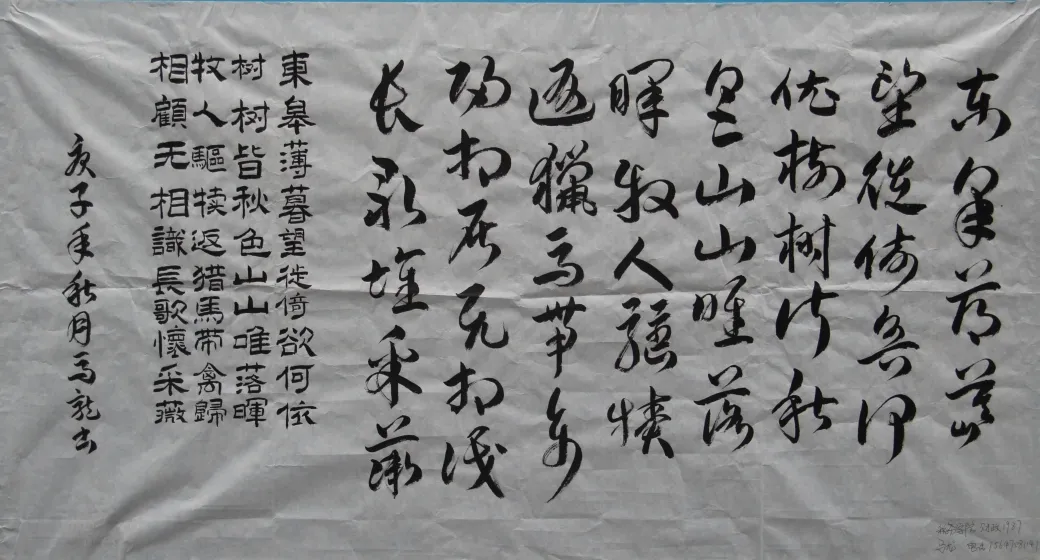 东皋薄暮
望徙倚欲何
依树树皆秋
色山山唯落
暉牧人驅犢
返獵马带禽
归相顾无相识
长歌怀采薇
東皋薄暮望徙倚欲何依
树树皆秋色山山唯落暉
牧人驅犊返猎馬带禽歸
相顧无相識長歌懷采薇
庚子年秋月马龙书